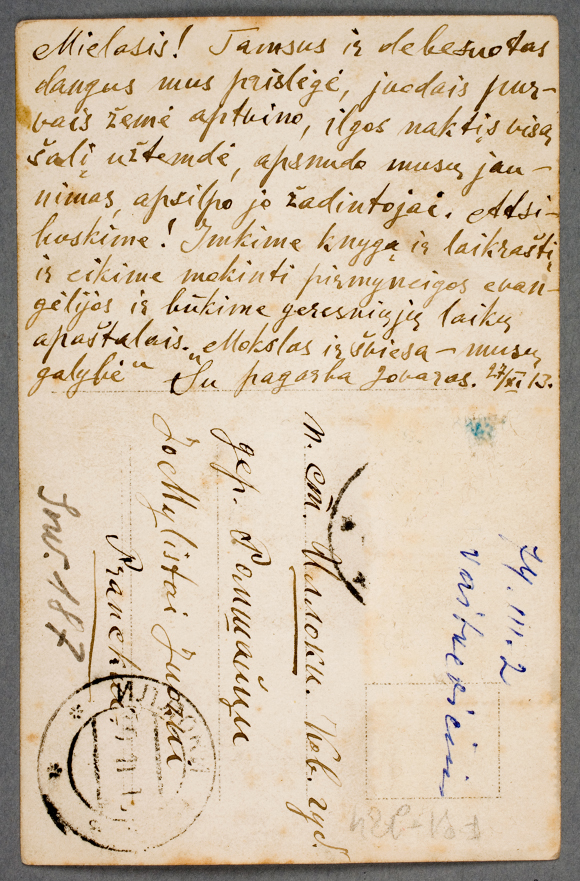 Mielasis! Tamsus ir debesuotas
dangus mus prislėgė, juodais pur-
vais žemė aptvino, ilgos naktįs visą
šalį užtemdė, apsnudo musų jau-
nimas, apsilpo jo žadintojai. Atsi-
buskime! Imkime knygą ir laikraštį
ir eikime mokinti pirmyneigos evan-
gėlijos ir būkime geresniųjų laikų
apaštalais. „Mokslas ir šviesa – musų
galybė“ Su pagarba Jovaras. 27/XI 13.
п. ст. Шилоки. Ков. губ.
дер. Ромшайцы
Jo Mylistai Juozui
Inv. 187
74.III.2